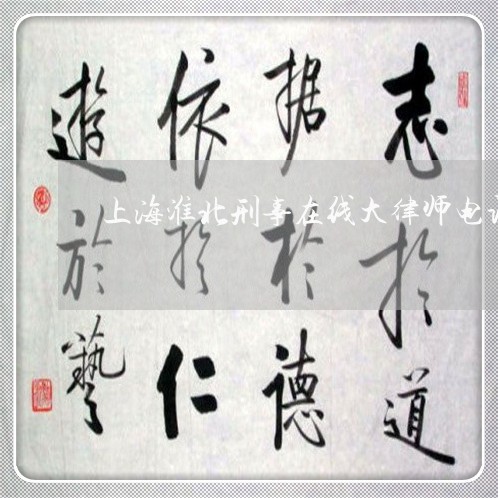 志於道
据於德
依於仁
遊於藝
上海淮北刑事在线大律师电